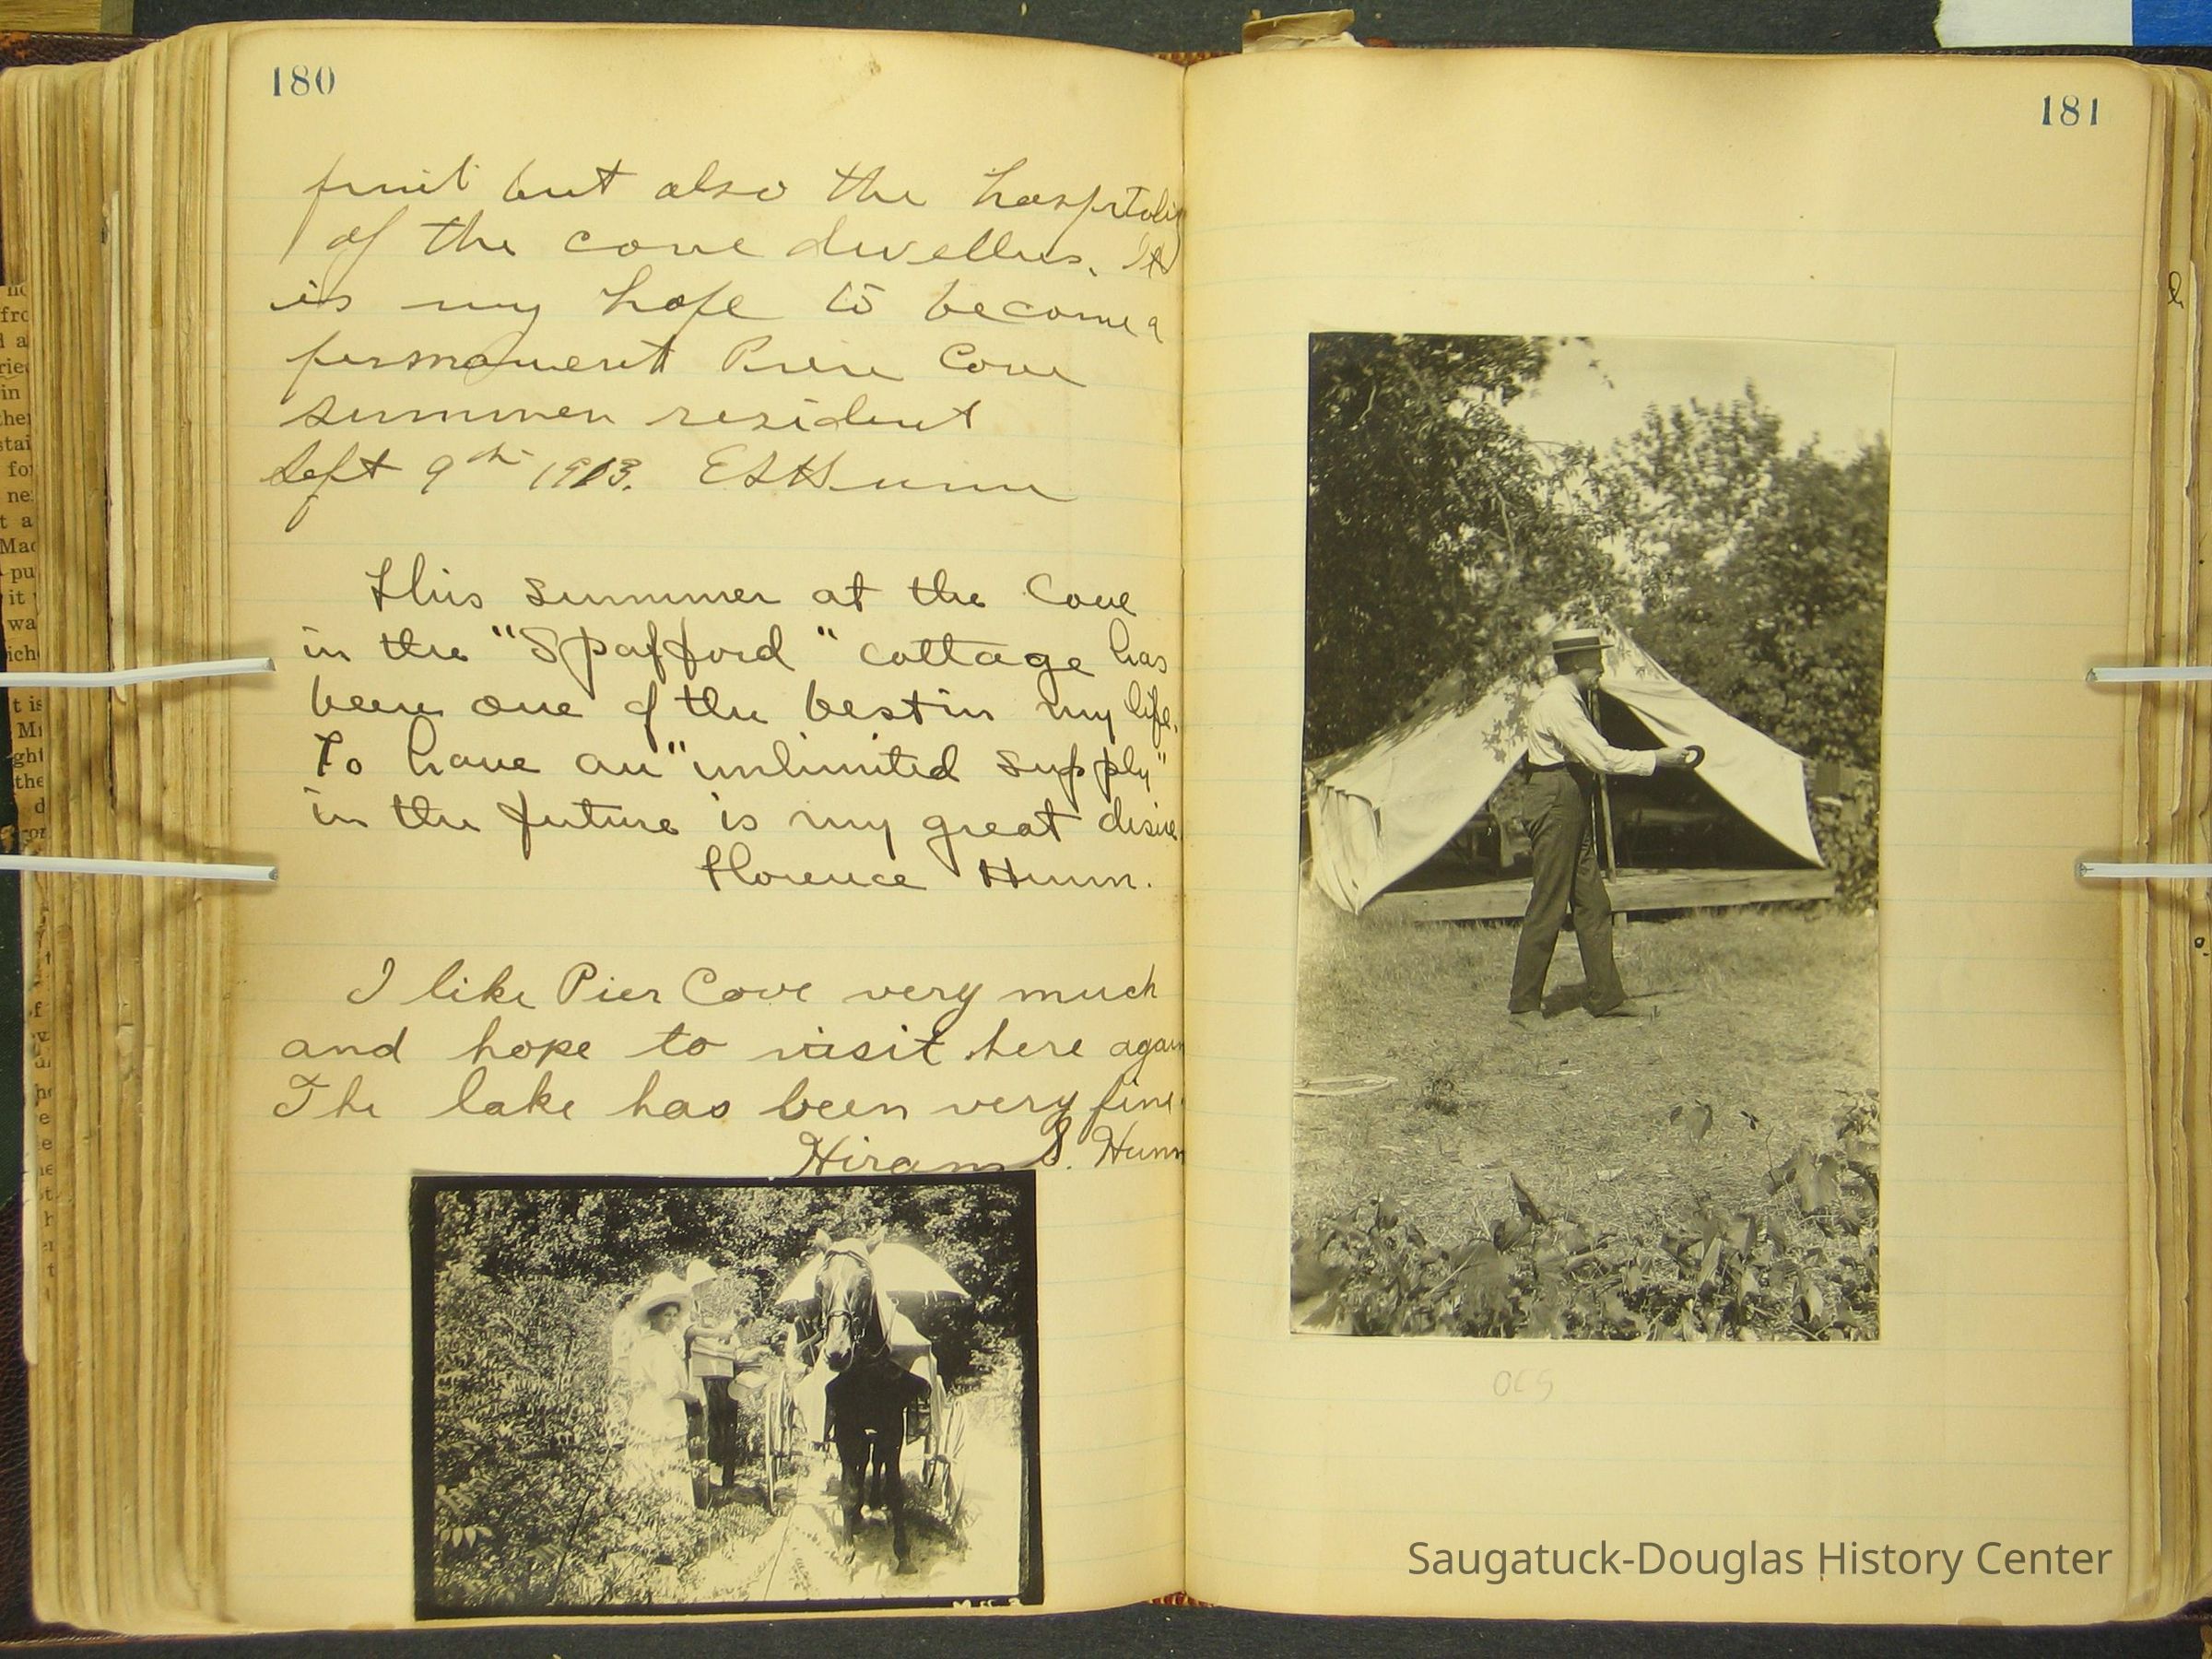 180
fruit but also the hospitality
of the cove dwellers. It
is my hope to become a
permanent Pier Cove
summer resident
Sept 9th 1913.
This summer at the Cove
in the "Spafford" cottage has
been one of the best in my life.
To have an "unlimited supply"
in the future is my great desire
Florence Hunn.
I like Pier Cove very much
and hope to visit here again
The lake has been very fine
Hiram S. Hunn
181
OCS
Saugatuck-Douglas History Center